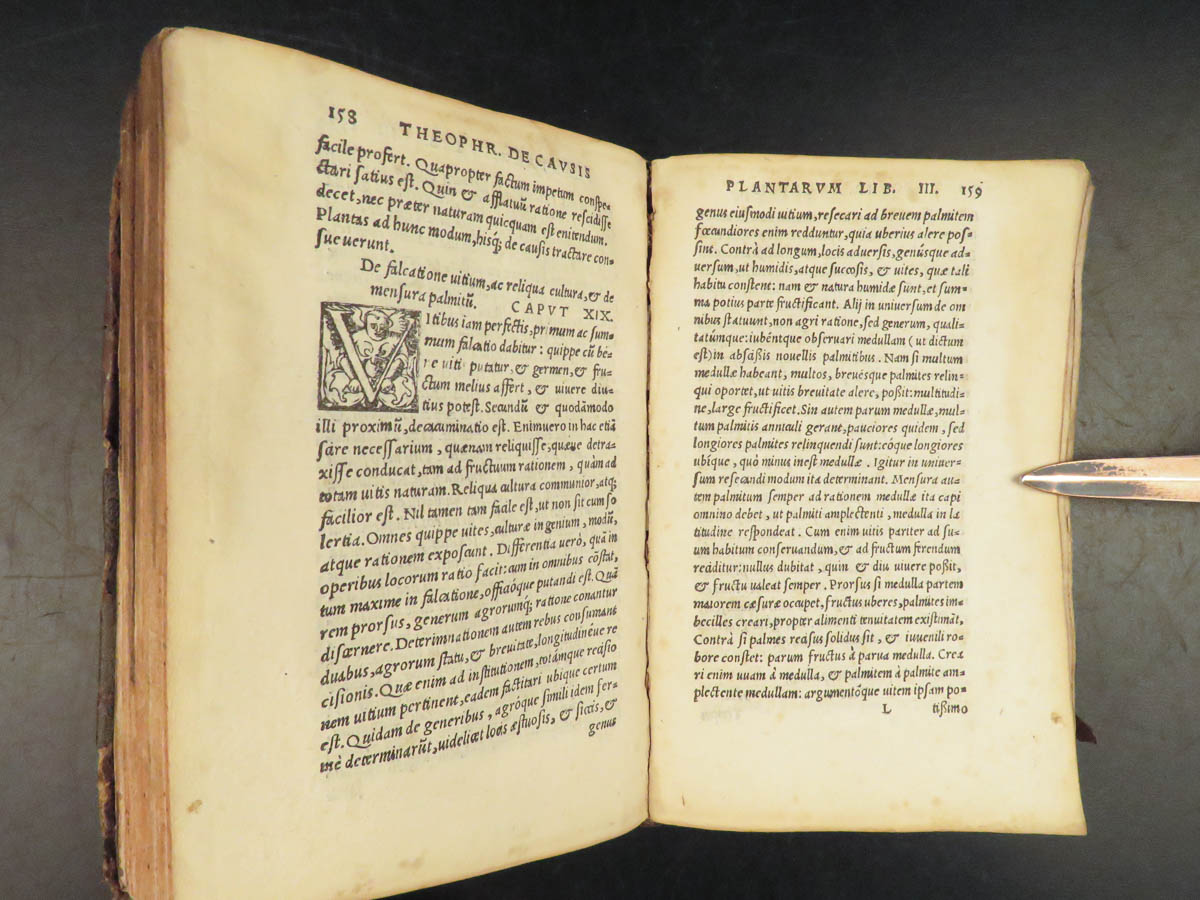 158
THEOPHR. DE CAVSIS
facile profert. Quapropter factum impetum conspe-
ctari satius est. Quin & afflatuũ ratione rescidisse
decet, nec præter naturam quicquam est enitendum.
Plantas ad hunc modum, hisq; de causis tractare con-
sueuerunt.
De falcatione uitium, ac reliqua cultura, & de
mensura palmitũ. CAPVT XIX.
VItibus iam perfectis, primum ac sum-
mum falcatio dabitur: quippe cũ be-
ne uiti putatur, & germen, & fru-
ctum melius affert, & uiuere diu-
tius potest. Secundũ & quodãmodo
illi proximũ, decacuminatio est. Enimuero in hac etiã
scire necessarium, quænam reliquisse, quæue detra-
xisse conducat, tam ad fructuum rationem, quàm ad
totam uitis naturam. Reliqua cultura communior, atq;
facilior est. Nil tamen tam facile est, ut non sit cum so
lertia. Omnes quippe uites, culturæ ingenium, modũ,
atque rationem exposcunt. Differentia uerò, quã in
operibus locorum ratio facit: cum in omnibus cõstat,
tum maxime in falcatione, officiaóque putandi est. Quã
rem prorsus, generum agrorumq; ratione conantur
discernere. Deterimnationem autem rebus consumant
duabus, agrorum statu, & breuitate, longitudinéue re
cisionis. Quæ enim ad institutionem, totámque recisio
nem uitium pertinent, eadem factitari ubique certum
est. Quidam de generibus, agróque simili idem fer-
mè determinarũt, uidelicet locis æstuosis, & siccis, &
genus
PLANTARVM LIB. III. 159
genus eiusmodi uitium, resecari ad breuem palmitem
fœcundiores enim redduntur, quia uberius alere pos-
sint. Contrà ad longum, locis aduersis, genúsque ad-
uersum, ut humidis, atque succosis, & uites, quæ tali
habitu constent: nam & natura humidæ sunt, et sum-
ma potius parte fructificant. Alij in uniuersum de om
nibus statuunt, non agri ratione, sed generum, quali-
tatúmque: iubéntque obseruari medullam (ut dictum
est) in abscißis nouellis palmitibus. Nam si multum
medullæ habeant, multos, breuésque palmites relin-
qui oportet, ut uitis breuitate alere, poßit: multitudi-
ne, large fructificet. Sin autem parum medullæ, mul-
tum palmitis anniculi gerant, pauciores quidem, sed
longiores palmites relinquendi sunt: eóque longiores
ubique, quò minus inest medullæ. Igitur in uniuer-
sum resecandi modum ita determinant. Mensura au-
tem palmitum semper ad rationem medullæ ita capi
omnino debet, ut palmiti amplectenti, medulla in la
titudine respondeat. Cum enim uitis pariter ad su-
um habitum conseruandum, & ad fructum ferendum
recidatur: nullus dubitat, quin & diu uiuere poßit,
& fructu ualeat semper. Prorsus si medulla partem
maiorem cæsuræ occupet, fructus uberes, palmites im-
becilles creari, propter alimenti tenuitatem existimãt,
Contrà si palmes recisus solidus sit, & iuuenili ro-
bore constet: parum fructus à parua medulla. Crea
ri enim uuam à medulla, & palmitem à palmite am-
plectente medullam: argumentóque uitem ipsam po-
L tißimo